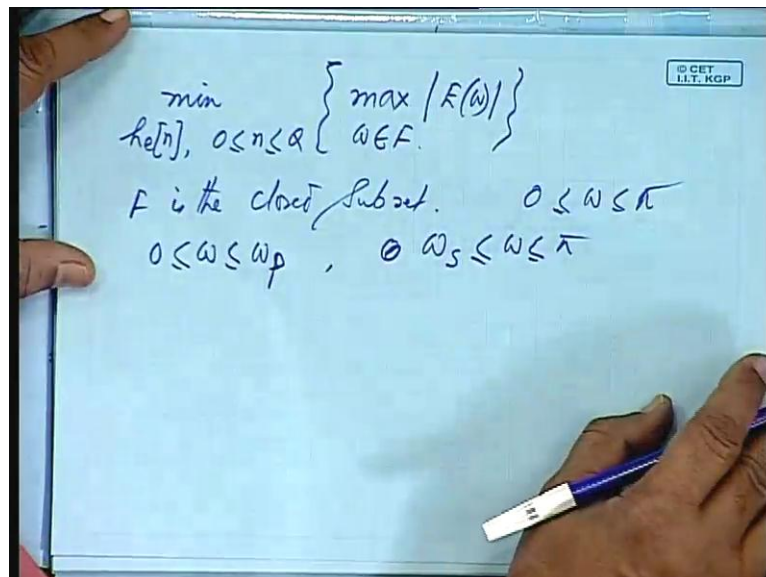 © CET
I.I.T. KGP
min { max |E(ω)| }
he[n], 0≤n≤Q { ω∈F. }
F is the closed subset. 0 ≤ ω ≤ π
0 ≤ ω ≤ ωp , ωs ≤ ω ≤ π